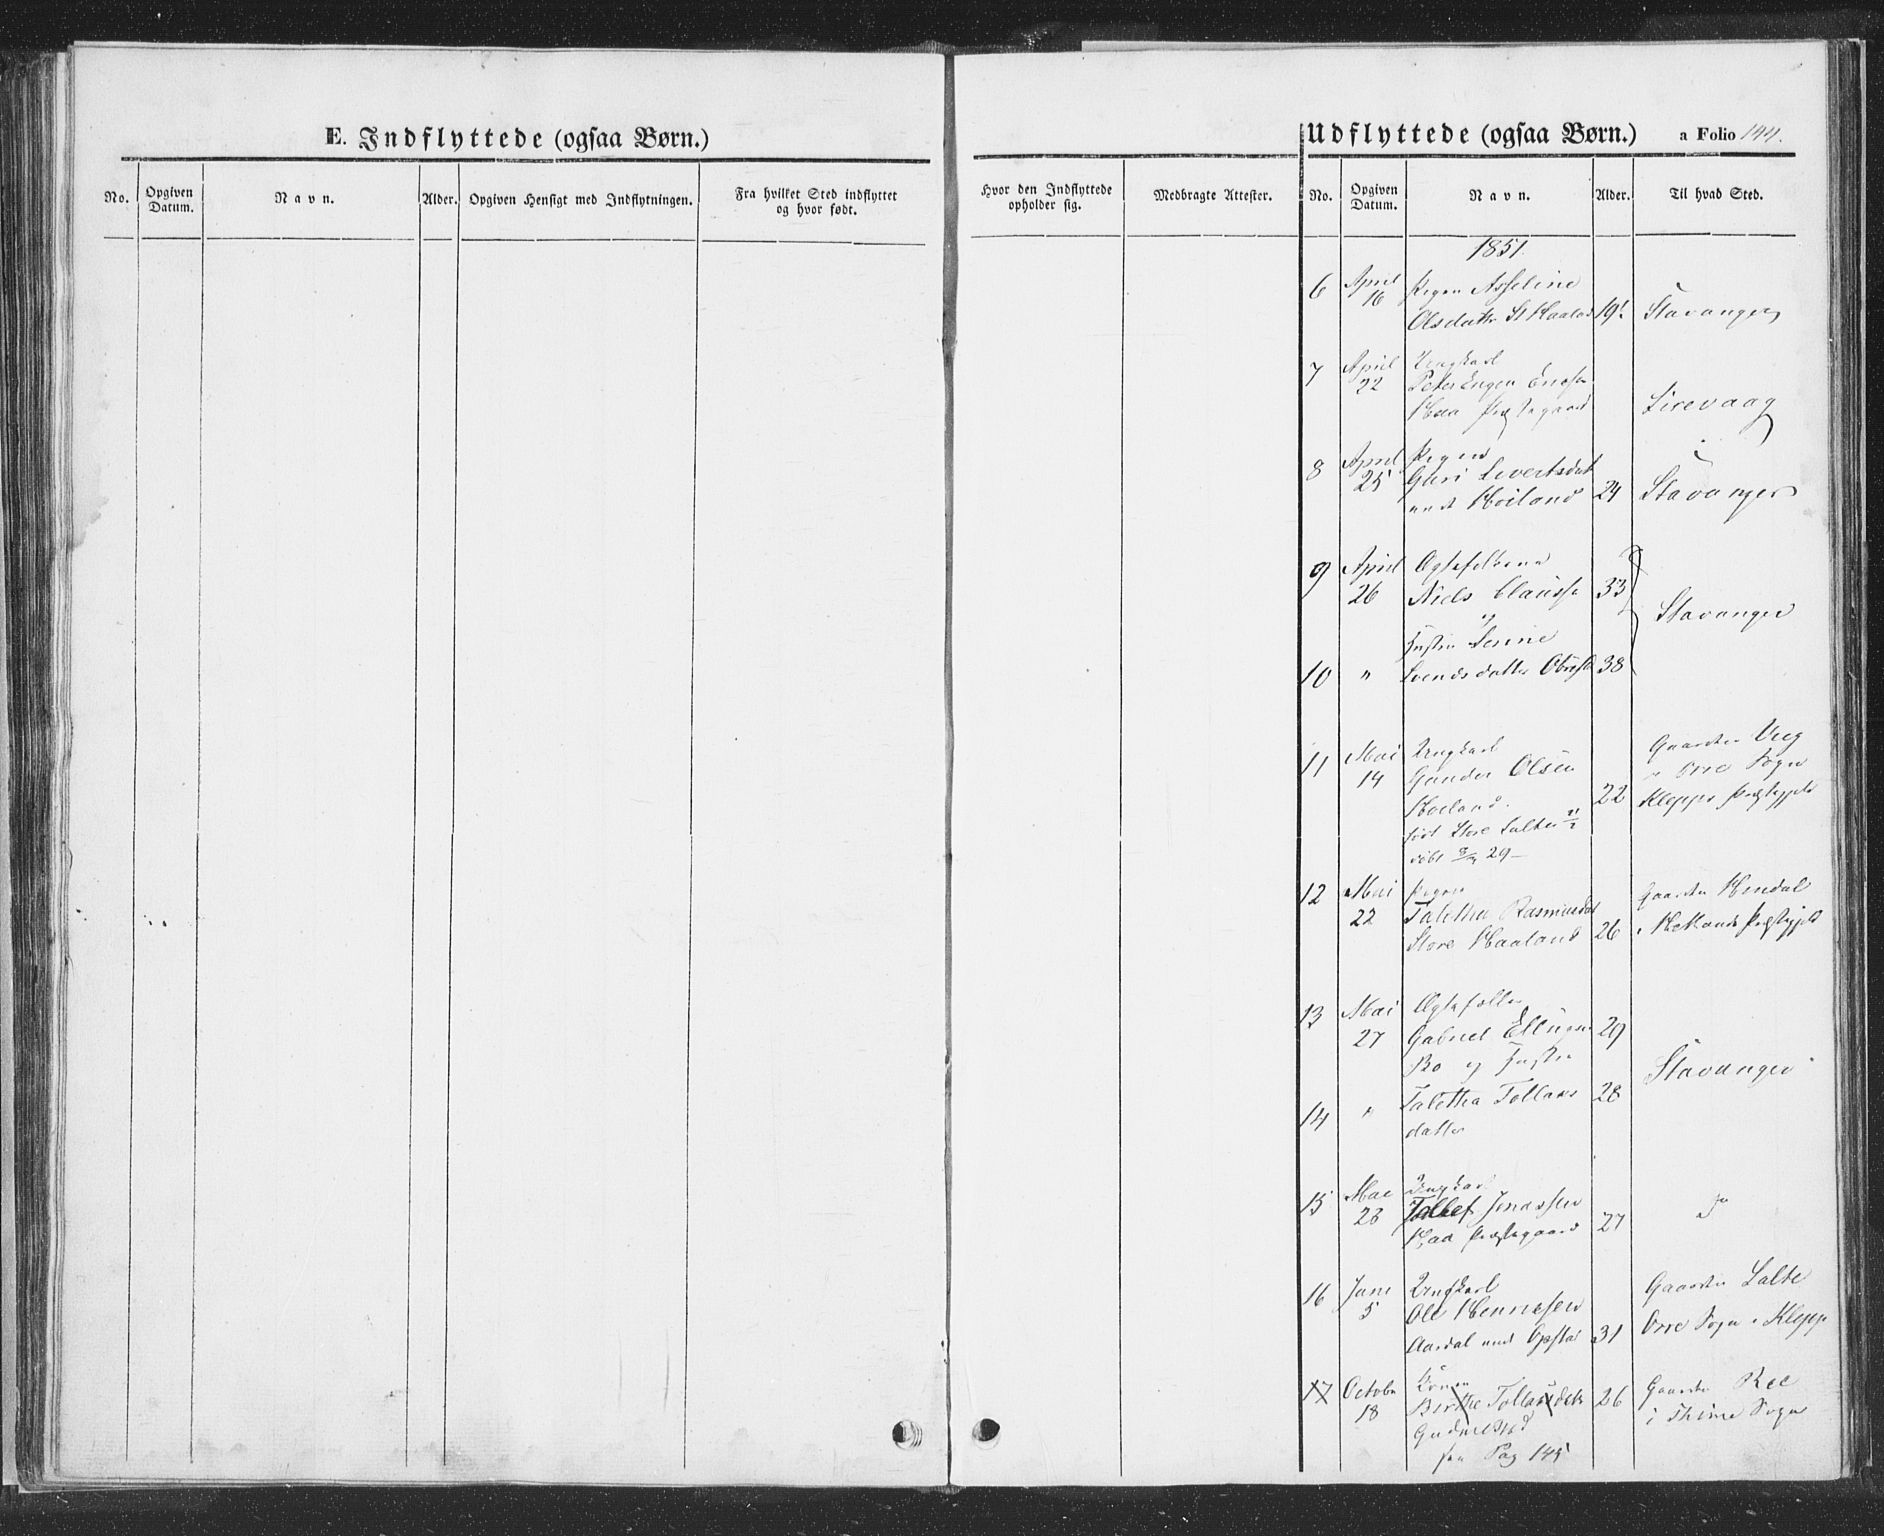 E. Indflyttede (ogsaa Børn.)
No.
Opgiven
Datum.
Navn.
Alder.
Opgiven Hensigt med Indflytningen.
Fra hvilket Sted indflyttet
og hvor født.
Hvor den Indflyttede
opholder sig.
Medbragte Attester.
Udflyttede (ogsaa Børn.)
a Folio 144.
No.
Opgiven
Datum.
Navn.
Alder.
Til hvad Sted.
1851.
6 April 16 Pigen Asseline
Olsdatter St Haaland 19 Stavanger
7 April 22 Ungkarl
Peter
Haa Præstegaard Sirevaag
8 April 25 Pigen
Guri Sivertsdat
Høiland 24 Stavanger
9 April 26 Ægtefolkene
Niels Clausse 33 Stavanger
og
Hustru Serine
10 " Svendsdatter Obrestad 38
11 Mai 14 Ungkarl
Gunder Olsen
Høiland. 22
født Store Salte
døbt 29
Gaarden Vig
i Orre Sogn
Klepps Præstegjeld
12 Mai 22 Pigen
Taletha Rasmusdat
Store Haaland 26
Gaarden
i Hetlands Præstegjeld
13 Mai 27 Ægtefolke
Gabriel Ellingsen 29
Bø og Hustru
Stavanger
14 " Taletha Tollaks 28
datter
15 Mai 28 Ungkarl
Tollef Jonassen
Haa Præstegaard 27
16 Juni 5 Ungkarl
Ole
Aardal 31
Gaarden Salte
Orre Sogn i Klepp
17 October 18 Konen
Berthe Tollaksdatr 26
Gudmestad
see Pag 145
Gaarden Ree
i Thime Sogn